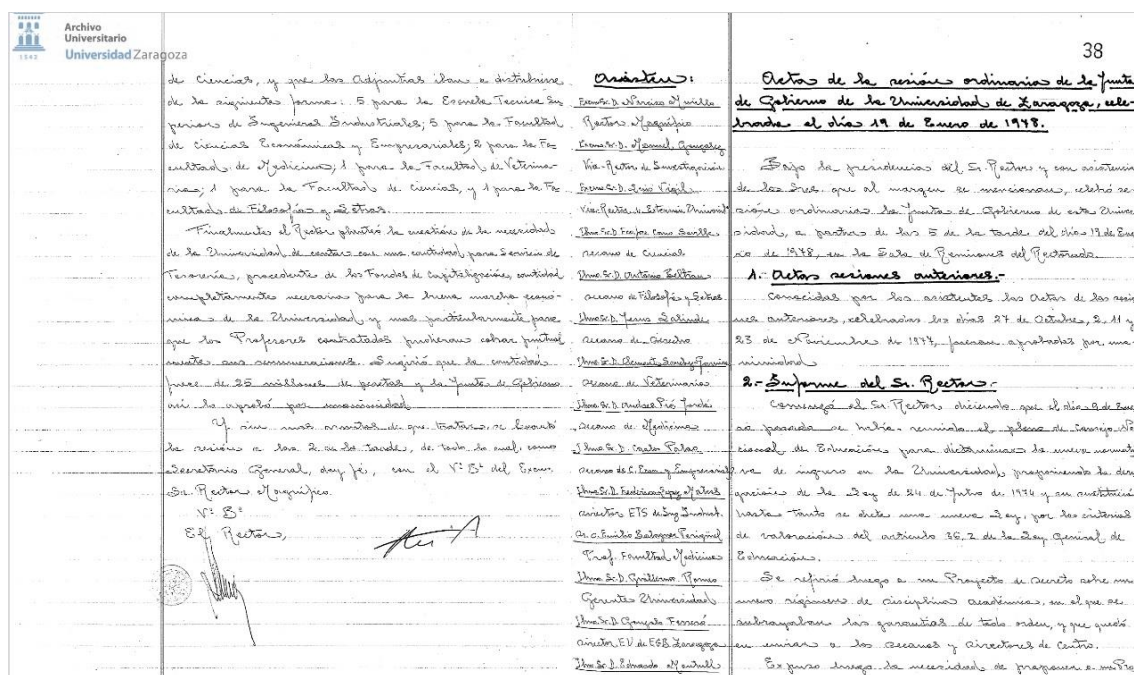 Archivo
Universitario
Universidad Zaragoza
1542
de Ciencias, y que las Adjuntías iban a distribuirse
de la siguiente forma: 5 para la Escuela Tecnica Su
perior de Ingenieros Industriales; 5 para la Facultad
de Ciencias Económicas y Empresariales; 2 para la Fa
cultad de Medicina; 1 para la Facultad de Veterina-
ria; 1 para la Facultad de Ciencias, y 1 para la Fa
cultad de Filosofía y Letras.
Finalmente el Rector planteó la cuestión de la necesidad
de la Universidad de contar con una cantidad para Servicio de
Tesorería, procedente de los Fondos de Capitalización, cantidad
completamente necesaria para la buena marcha econó-
mica de la Universidad y mas particularmente para
que los Profesores contratados pudieran cobrar puntual
mente sus remuneraciones. Sugirió que la cantidad
fuese de 25 millones de pesetas y la Junta de Gobierno
así lo aprobó por unanimidad.
Y sin mas asuntos de que tratar, se levantó
la sesión a las 2 de la tarde, de todo lo cual, como
Secretario General, doy fé, con el Vº Bº del Excmo.
Sr. Rector Magnífico.
Vº Bº
El Rector,
Asisten:
Excmo. Sr. D. Narciso Murillo
Rector Magnífico
Excmo. Sr. D. Manuel González
Vice-Rector de Investigación
Excmo. Sr. D. Luis Vigil
Vice-Rector de Extensión Universit
Ilmo. Sr. D. Cano Sevilla
Decano de Ciencias
Ilmo. Sr. D. Antonio Beltran
Decano de Filosofía y Letras
Ilmo. Sr. D. Jesus Lalinde
Decano de Derecho
Ilmo. Sr. D. Clemente Sanchez-Garnica
Decano de Veterinaria
Ilmo. Sr. D. Andres Pié Jordá
Decano de Medicina
Ilmo. Sr. D. Palao
Decano de C. Econ. y Empresarial
Ilmo. Sr. D. Federico Lopez Mateos
Director ETS de Ing. Indust.
Sr. D. Emilio
Prof. Facultad Medicina
Ilmo. Sr. D. Guillermo Romeo
Gerente Universidad
Ilmo. Sr. D. Gonzalo Ferreró
Director EU de EGB Zaragoza
Ilmo. Sr. D. Eduardo Montull
38
Acta de la sesión ordinaria de la Junta
de Gobierno de la Universidad de Zaragoza, cele-
brada el día 19 de Enero de 1978.
Bajo la presidencia del Sr. Rector y con asistencia
de los Sres. que al margen se mencionan, celebró se
sión ordinaria la Junta de Gobierno de esta Univer
sidad, a partir de las 5 de la tarde del día 19 de Ene
ro de 1978, en la Sala de Reuniones del Rectorado.
1.- Actas sesiones anteriores.-
Conocidas por los asistentes las Actas de las sesio
nes anteriores, celebradas los días 27 de Octubre, 2, 11 y
23 de Noviembre de 1977, fueron aprobadas por una
nimidad.
2.- Informe del Sr. Rector.-
Comenzó el Sr. Rector diciendo que el día 9 de Ene
ro pasado se había reunido el pleno de Consejo Na
cional de Educación, para dictaminar la nueva normati
va de ingreso en la Universidad, proponiendo la dero
gación de la Ley de 24 de Julio de 1974 y su sustitución
hasta tanto se dicte una nueva Ley, por los criterios
de valoración del artículo 36.2 de la Ley General de
Educación.
Se refirió luego a un Proyecto de Decreto sobre un
nuevo régimen de disciplina académica, en el que se
subrayaban las garantías de todo orden, y que quedó
en enviar a los Decanos y Directores de Centro.
Expuso luego la necesidad de proponer a un Pro